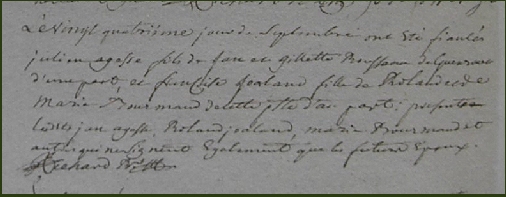 Le vingt quatrieme jour de Septembre ont été fiancés
julien agasse fils de jan et gillette Rousseau de
d'une part, et francoise joaland fille de Roland et de
Marie Bourmaud de cette d'au part; presents
lesdits jan agasse, Roland joaland, marie Bourmaud et
autres qui ne signent Egalement que les futurs Epoux.
Richard